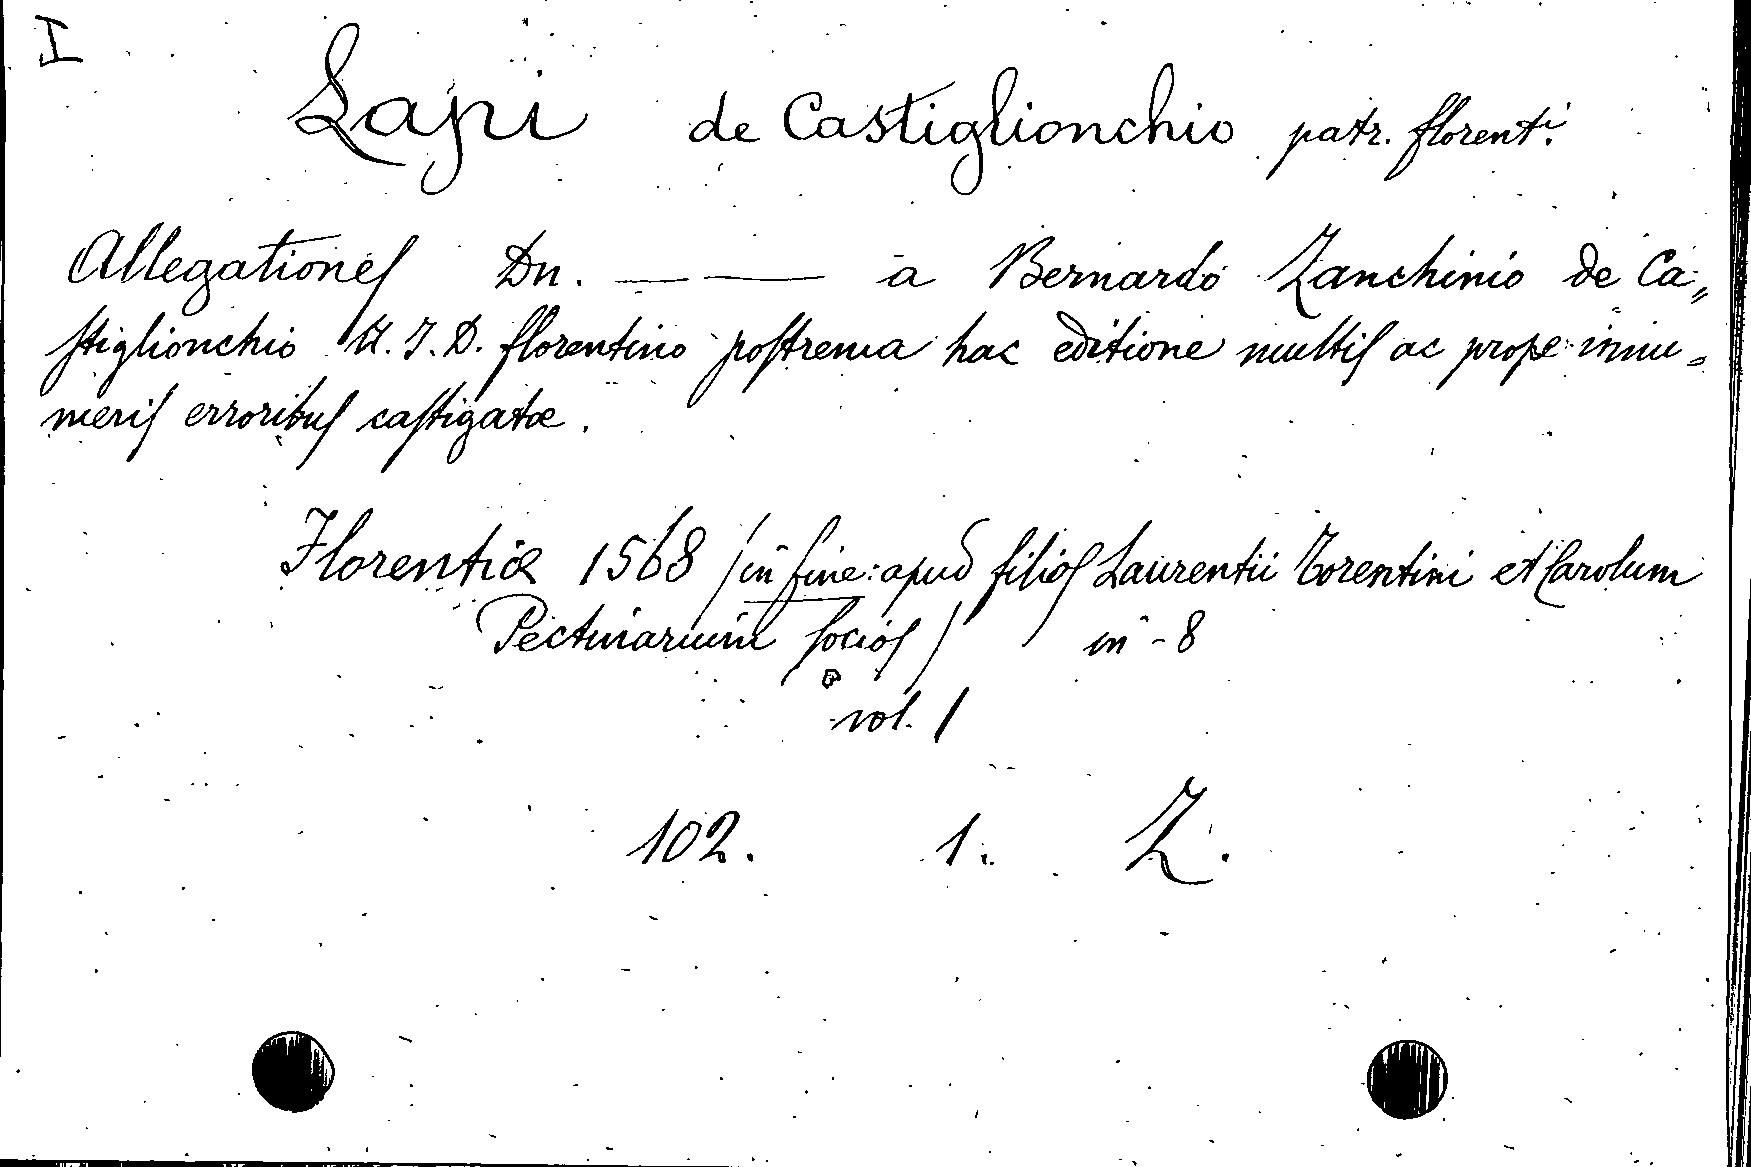 I
Lapi de Castiglionchio patr. florent.i
Allegationes Dn. — — a Bernardo Zanchinio de Ca„
stiglionchio U. J. D. florentino postrema hac editione multis ac prope innu=
meris erroribus castigatæ.
Florentiæ 1568 (in fine: apud filios Laurentii Torentini et Carolum
Pectinarium socios) in-8
vol. 1
102. 1. Z.